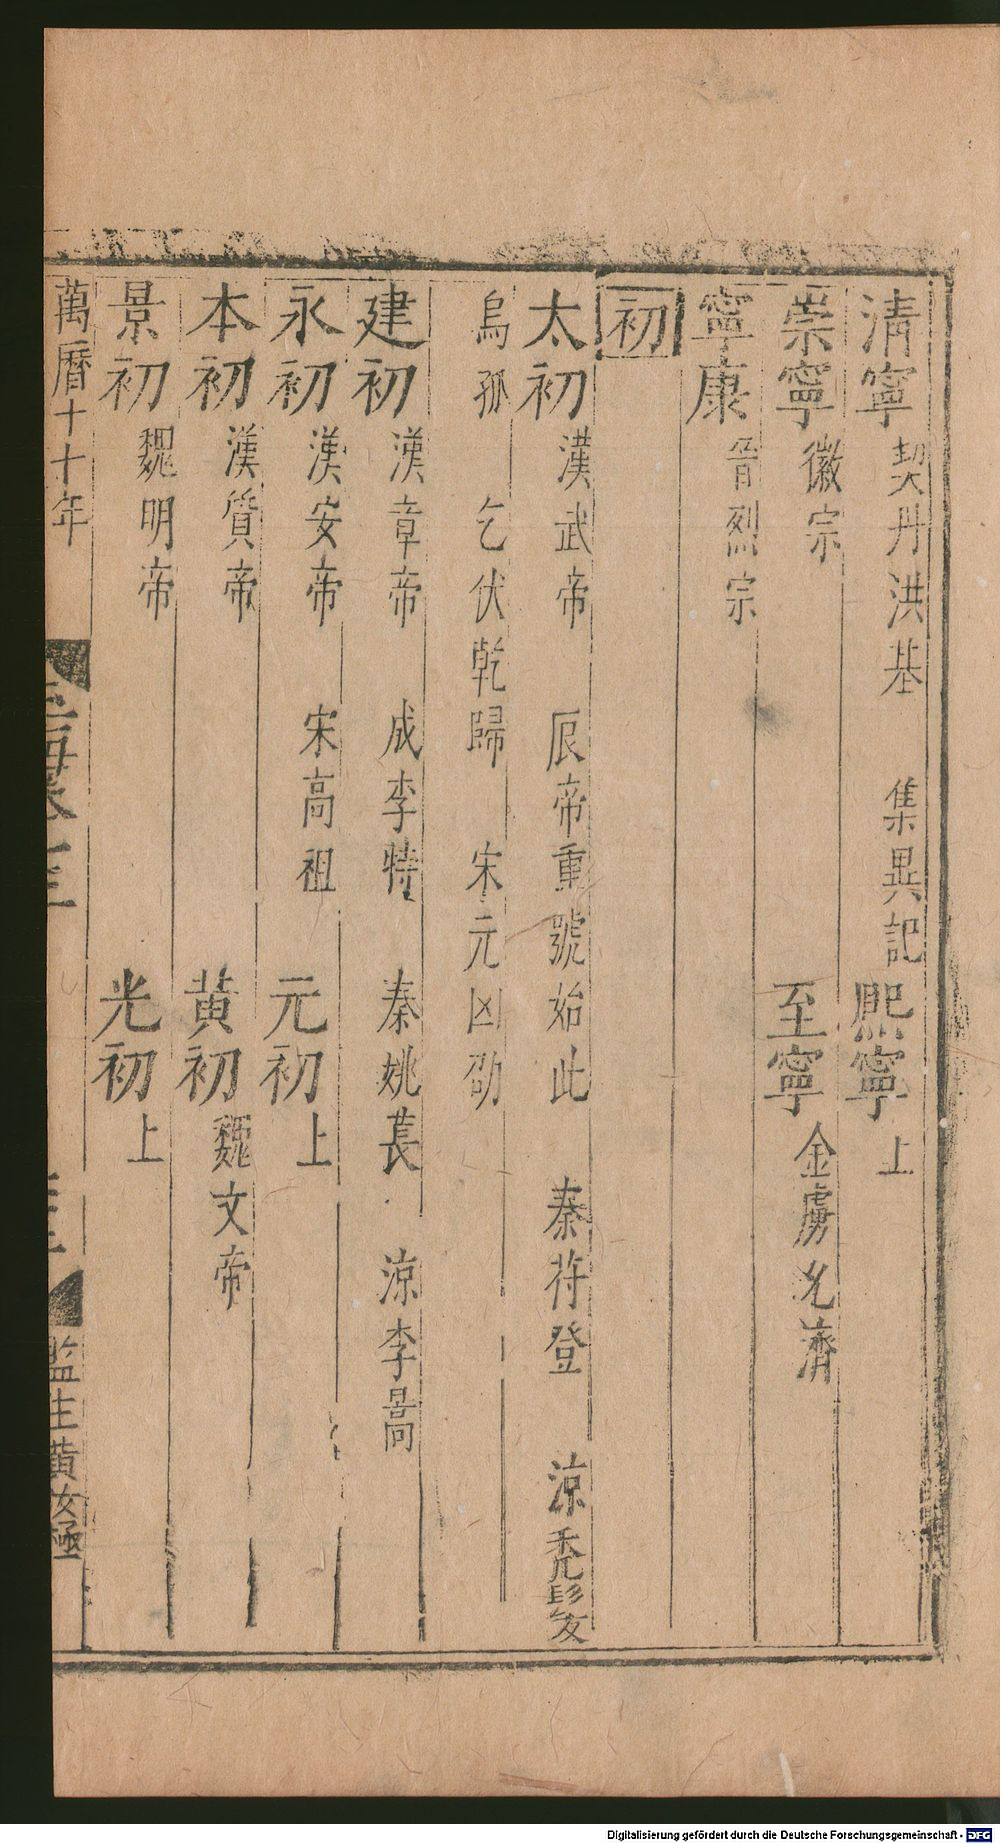 清寧 契丹洪基 集異記 熙寧 上
崇寧 徽宗 至寧 金虜允濟
寧康 晉烈宗
初
太初 漢武帝 辰帝重號始此 秦苻登 涼禿髮
烏孤 乞伏乾歸 宋元凶劭
建初 漢章帝 成李特 秦姚萇 涼李暠
永初 漢安帝 宋高祖 元初 上
本初 漢質帝 黃初 魏文帝
景初 魏明帝 光初 上
萬曆十十年
監生黃汝極
Digitalisierung gefördert durch die Deutsche Forschungsgemeinschaft - DFG